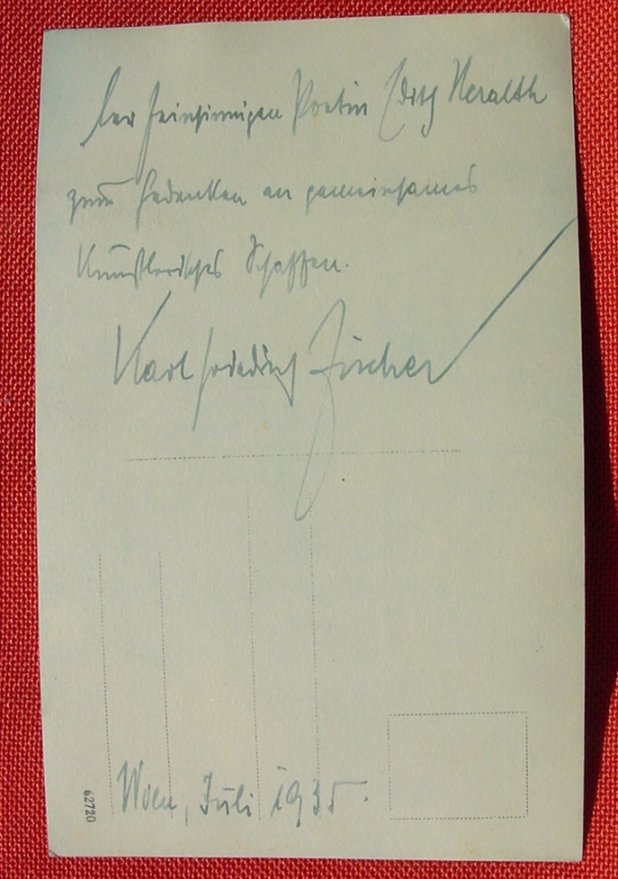 Der feinsinnigen Poetin Edith Heralth
zum Gedenken an gemeinsames
künstlerisches Schaffen.
Karl Friedrich Fischer
Wien, Juli 1935.
62720